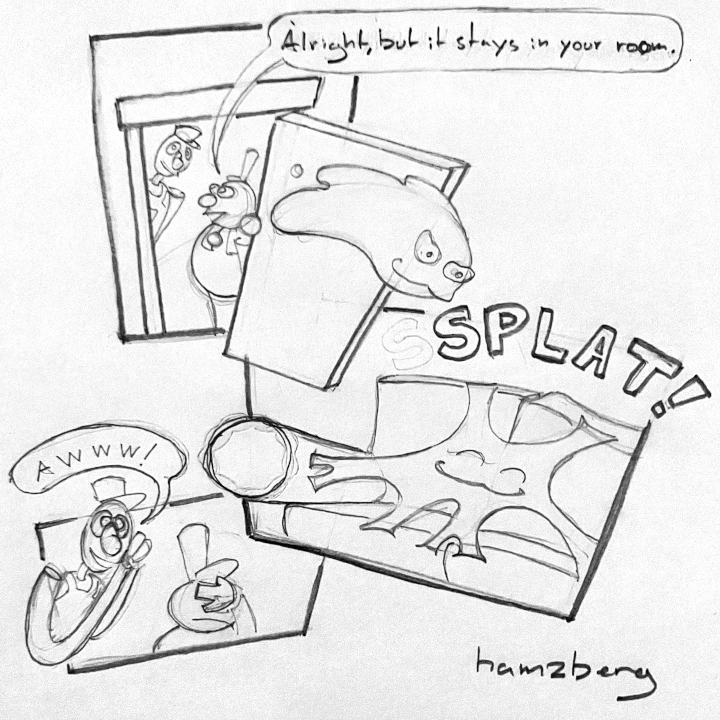 Alright, but it stays in your room.
SSPLAT!
AWWW!
hamzberg